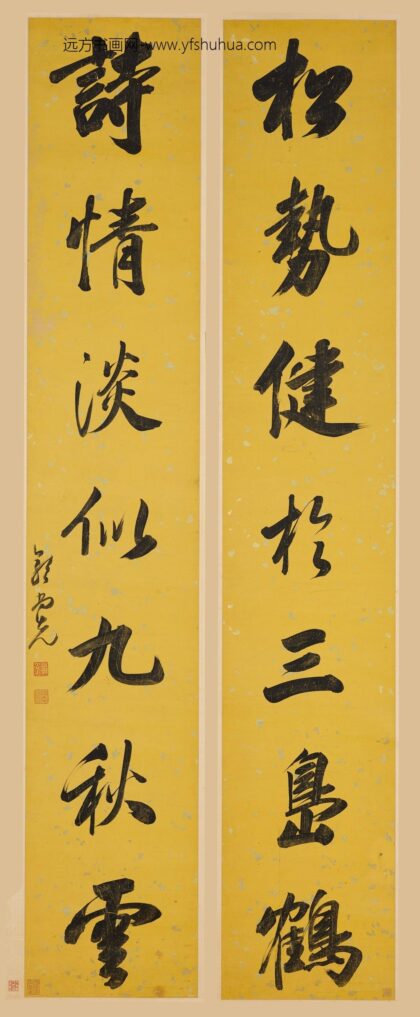 远方书画网-www.yfshuhua.com
松勢健於三島鶴
詩情淡似九秋雲